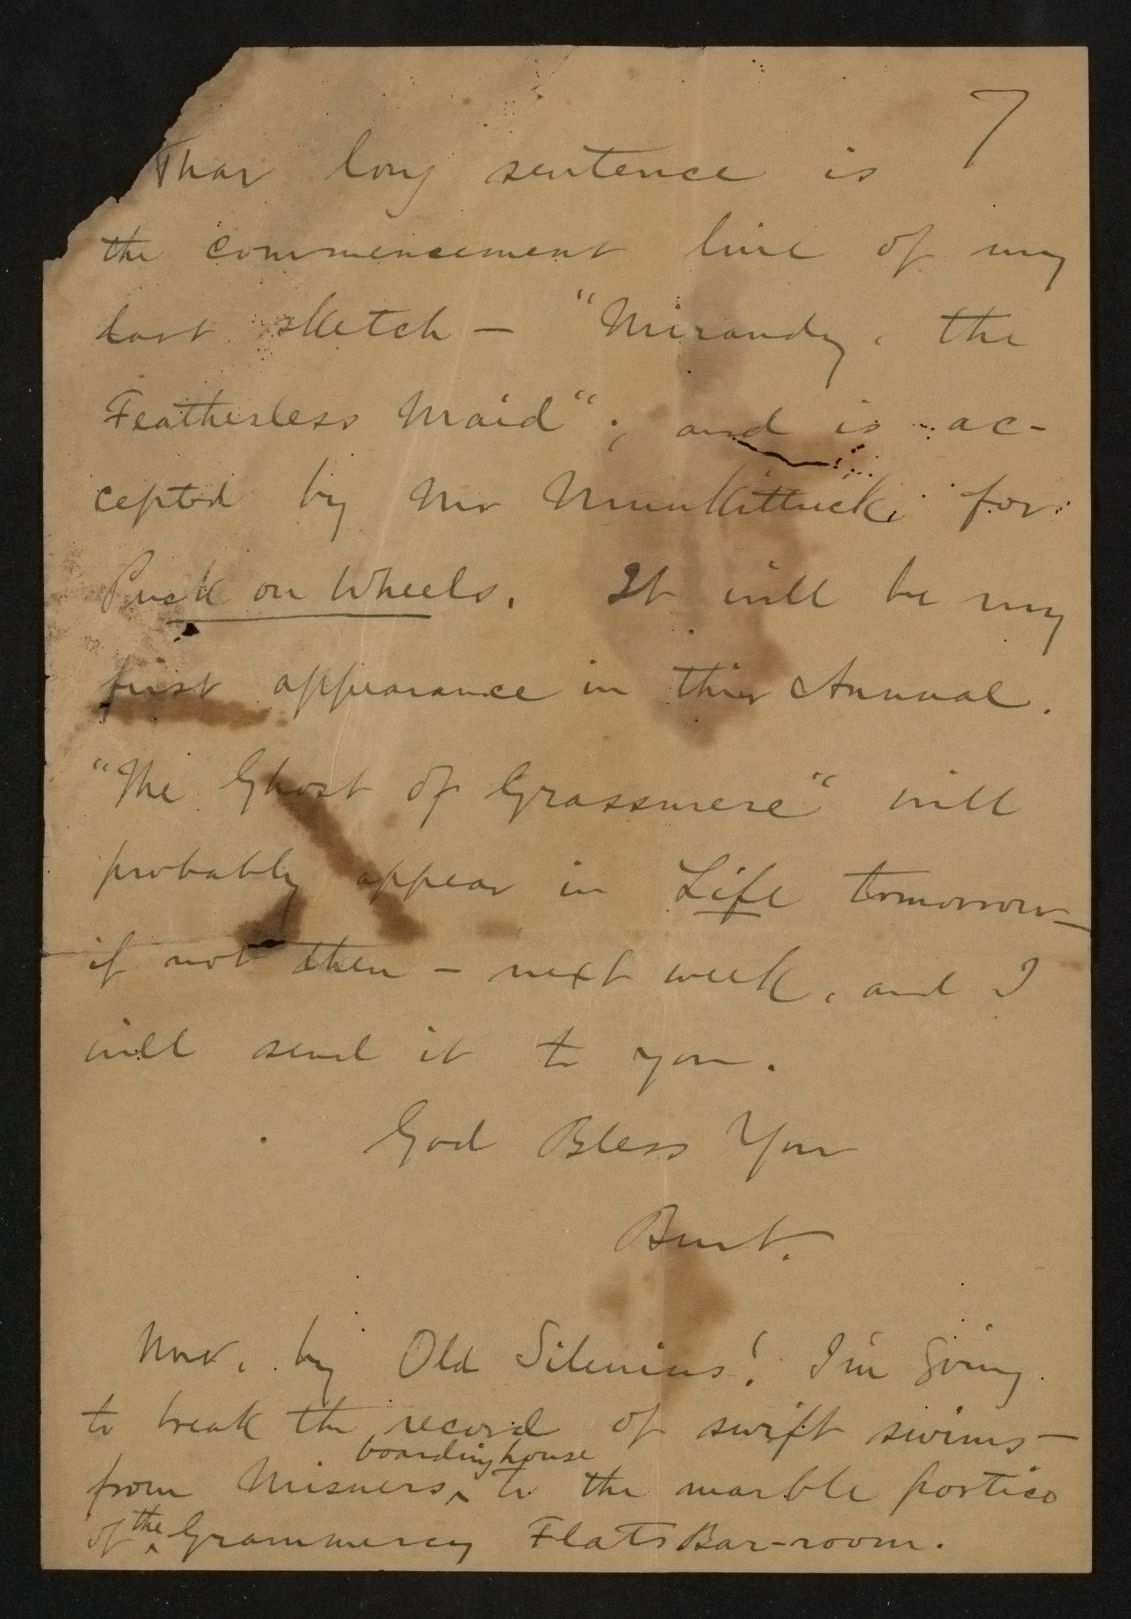 7
That long sentence is
the commencement line of my
last sketch — "Mirandy, the
Featherless Maid"; and is ac-
cepted by Mr Munkittrick, for
Puck on Wheels. It will be my
first appearance in this Annual.
"The Ghost of Grassmere" will
probably appear in Life tomorrow—
if not then — next week, and I
will send it to you.
God Bless You
Burt.
Now, by Old Silenius! I'm going
to break the record of swift swims—
boarding house
from Misners, to the marble portico
of the Grammercy Flats Bar-room.